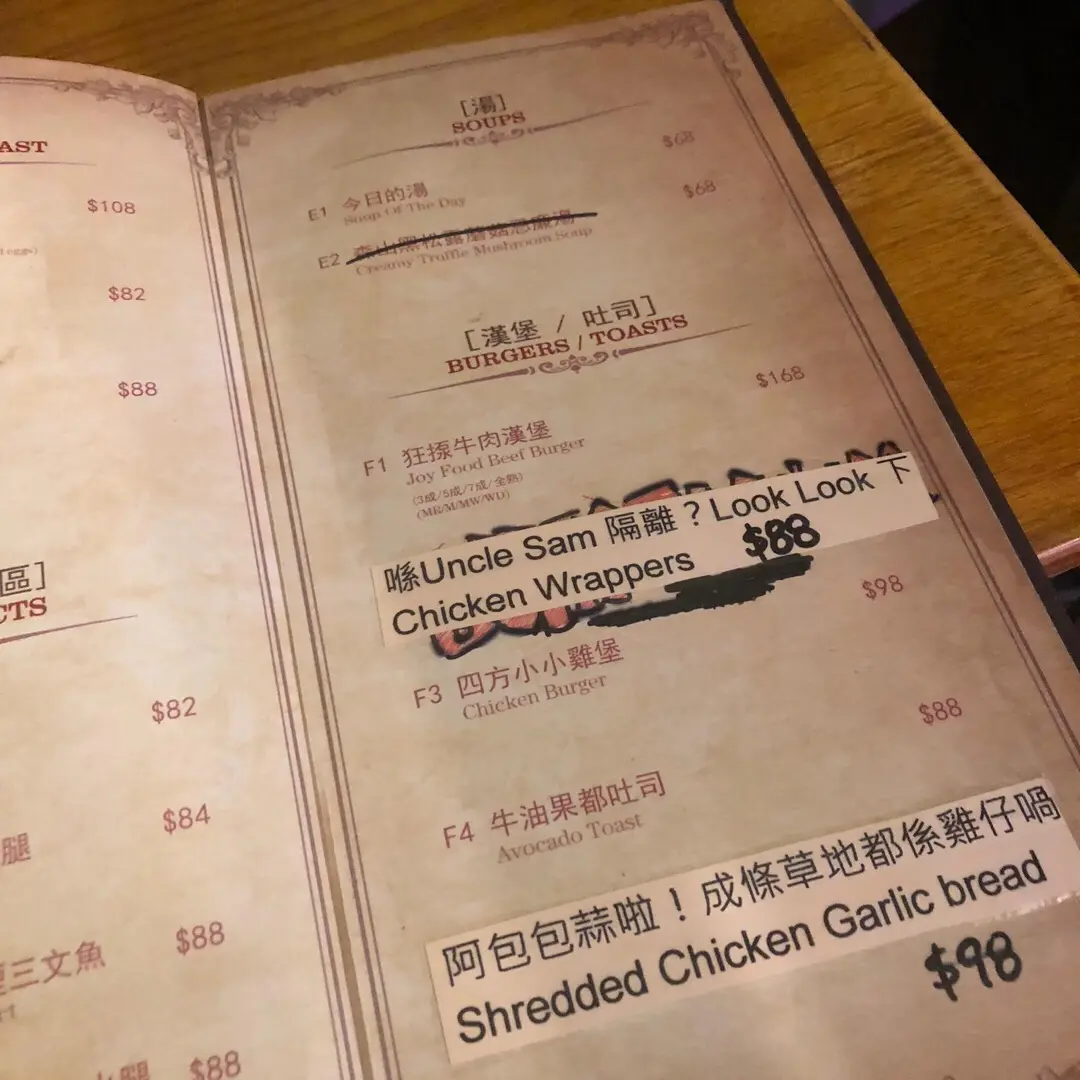 AST
$108
d eggs)
$82
$88
區]
CTS
$82
腿
$84
三文魚
$88
腿
$88
[湯]
SOUPS
$68
E1 今日的湯
Soup Of The Day
$68
E2 森山黑松露蘑菇忌廉湯
Creamy Truffle Mushroom Soup
[漢堡 / 吐司]
BURGERS / TOASTS
$168
F1 狂掁牛肉漢堡
Joy Food Beef Burger
(3成/5成/7成/全熟)
(MR/M/MW/WD)
喺Uncle Sam 隔離？Look Look 下
Chicken Wrappers $88
$98
F3 四方小小雞堡
Chicken Burger
$88
F4 牛油果都吐司
Avocado Toast
阿包包蒜啦！成條草地都係雞仔喎
Shredded Chicken Garlic bread
$98